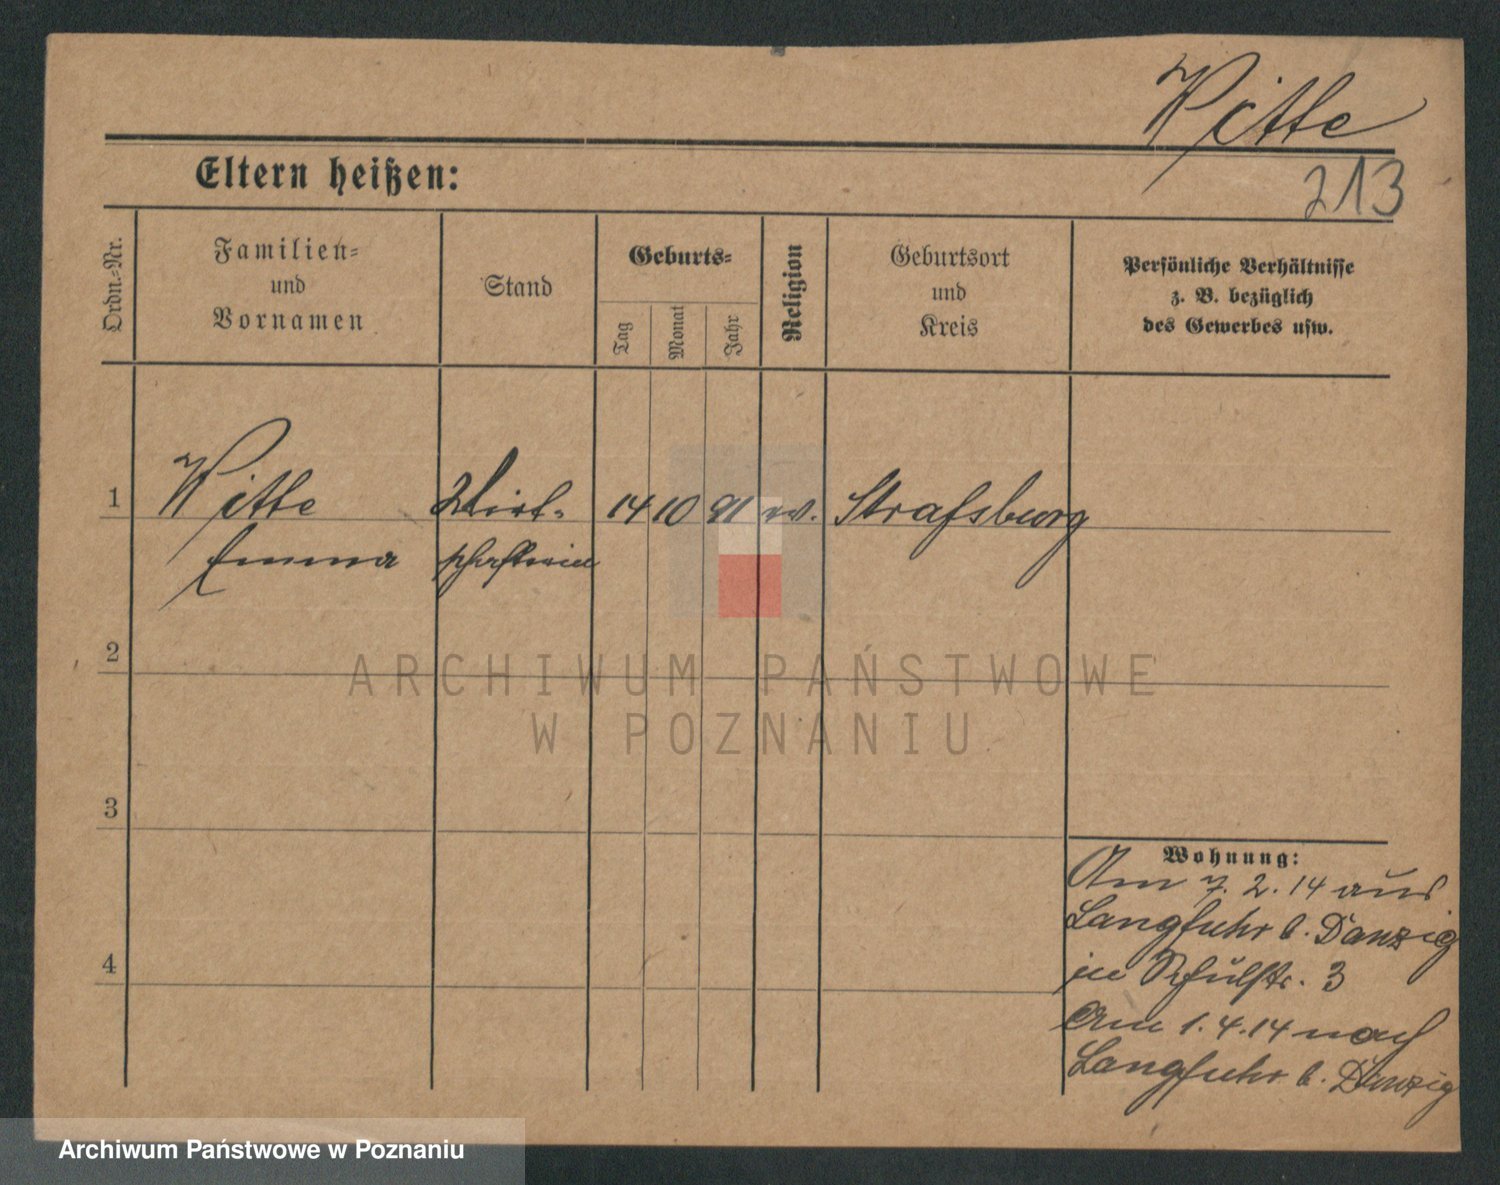 Witte
213
Eltern heißen:
Ordn.-Nr.
Familien-
und
Vornamen
Stand
Geburts-
Tag
Monat
Jahr
Religion
Geburtsort
und
Kreis
Persönliche Verhältnisse
z. B. bezüglich
des Gewerbes usw.
1
Witte
Wirt-
14
10
91
ev.
Strasburg
Emma
schafterin
2
3
4
Wohnung:
Am 7. 2. 14 aus
Langfuhr b. Danzig
in Schulstr. 3
Am 1. 4. 14 nach
Langfuhr b. Danzig
ARCHIWUM PAŃSTWOWE
W POZNANIU
Archiwum Państwowe w Poznaniu